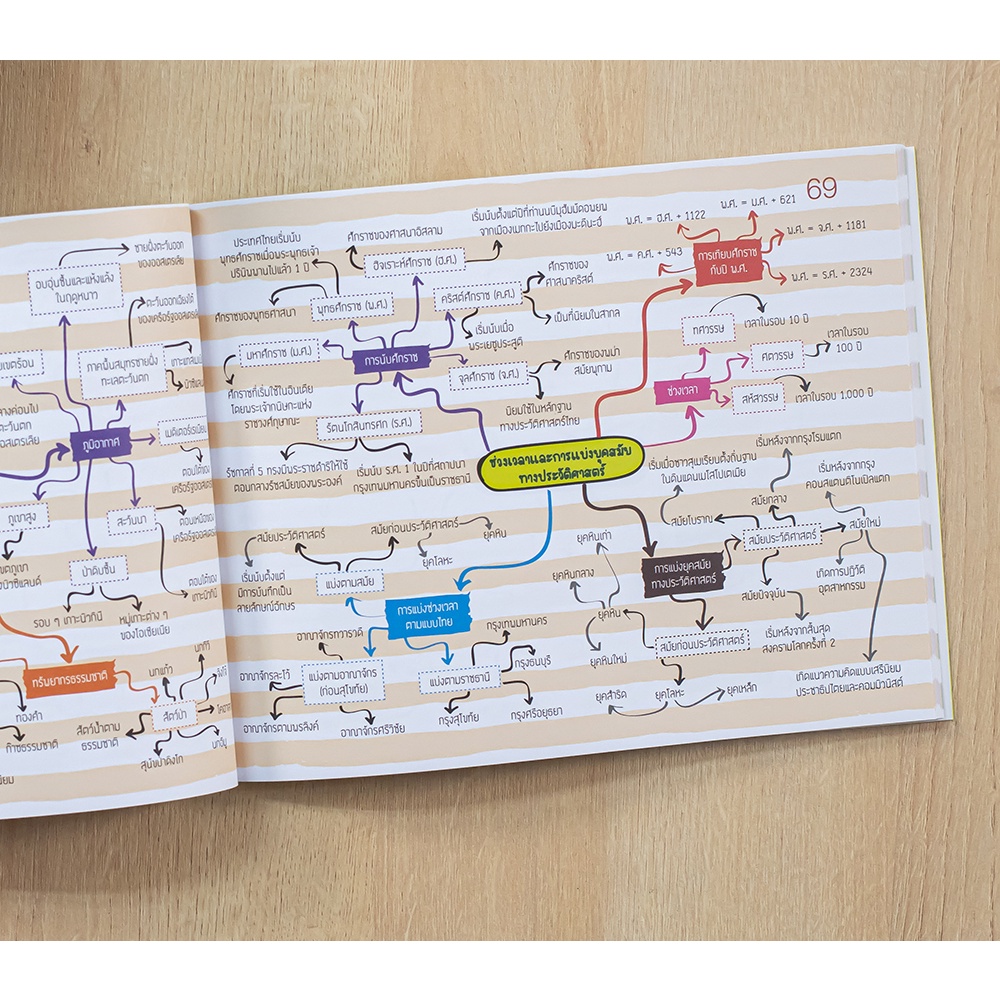 ชายฝั่งตะวันออก
ของออสเตรเลีย
อบอุ่นชื้นและแห้งแล้ง
ในฤดูหนาว
ตะวันออกเฉียงใต้
ภาคพื้นสมุทรชายฝั่ง
ทะเลตะวันตก
ภูมิอากาศ
ตอนใต้ของ
สะวันนา
ตอนเหนือของ
ภูเขาสูง
ป่าดิบชื้น
ตอนใต้ของ
เกาะนิวกินี
รอบ ๆ เกาะนิวกินี
หมู่เกาะต่าง ๆ
ของโอเชียเนีย
ทรัพยากรธรรมชาติ
นกแก้ว
นกกีวี
จิงโจ้
สัตว์ป่า
ทองคำ
ก๊าซธรรมชาติ
สัตว์น้ำตาม
ธรรมชาติ
สุนัขป่าดิงโก
นกอีมู
69
ช่วงเวลาและการแบ่งยุคสมัย
ทางประวัติศาสตร์
การนับศักราช
ประเทศไทยเริ่มนับ
พุทธศักราชเมื่อพระพุทธเจ้า
ปรินิพพานไปแล้ว 1 ปี
ศักราชของพุทธศาสนา
พุทธศักราช (พ.ศ.)
ศักราชของศาสนาอิสลาม
เริ่มนับตั้งแต่ปีที่ท่านนบีมุฮัมมัดอพยพ
จากเมืองเมกกะไปยังเมืองมะดีนะฮ์
ฮิจเราะห์ศักราช (ฮ.ศ.)
คริสต์ศักราช (ค.ศ.)
ศักราชของ
ศาสนาคริสต์
เป็นที่นิยมในสากล
เริ่มนับเมื่อ
พระเยซูประสูติ
มหาศักราช (ม.ศ.)
ศักราชที่เริ่มใช้ในอินเดีย
โดยพระเจ้ากนิษกะแห่ง
ราชวงศ์กุษาณะ
จุลศักราช (จ.ศ.)
ศักราชของพม่า
สมัยพุกาม
นิยมใช้ในหลักฐาน
ทางประวัติศาสตร์ไทย
รัตนโกสินทรศก (ร.ศ.)
รัชกาลที่ 5 ทรงมีพระราชดำริให้ใช้
ตอนกลางรัชสมัยของพระองค์
เริ่มนับ ร.ศ. 1 ในปีที่สถาปนา
กรุงเทพมหานครขึ้นเป็นราชธานี
การเทียบศักราช
กับปี พ.ศ.
พ.ศ. = ฮ.ศ. + 1122
พ.ศ. = ม.ศ. + 621
พ.ศ. = จ.ศ. + 1181
พ.ศ. = ค.ศ. + 543
พ.ศ. = ร.ศ. + 2324
ช่วงเวลา
ทศวรรษ
เวลาในรอบ 10 ปี
ศตวรรษ
เวลาในรอบ
100 ปี
สหัสวรรษ
เวลาในรอบ 1,000 ปี
การแบ่งช่วงเวลา
ตามแบบไทย
แบ่งตามสมัย
สมัยประวัติศาสตร์
เริ่มนับตั้งแต่
มีการบันทึกเป็น
ลายลักษณ์อักษร
สมัยก่อนประวัติศาสตร์
ยุคหิน
ยุคโลหะ
แบ่งตามอาณาจักร
(ก่อนสุโขทัย)
อาณาจักรทวารวดี
อาณาจักรละโว้
อาณาจักรตามพรลิงค์
อาณาจักรศรีวิชัย
แบ่งตามราชธานี
กรุงเทพมหานคร
กรุงธนบุรี
กรุงศรีอยุธยา
กรุงสุโขทัย
การแบ่งยุคสมัย
ทางประวัติศาสตร์
สมัยประวัติศาสตร์
สมัยโบราณ
เริ่มเมื่อชาวสุเมเรียนตั้งถิ่นฐาน
ในดินแดนเมโสโปเตเมีย
สมัยกลาง
เริ่มหลังจากกรุงโรมแตก
สมัยใหม่
เริ่มหลังจากกรุง
คอนสแตนติโนเปิลแตก
เกิดการปฏิวัติ
อุตสาหกรรม
เกิดแนวความคิดแบบเสรีนิยม
ประชาธิปไตยและคอมมิวนิสต์
สมัยปัจจุบัน
เริ่มหลังจากสิ้นสุด
สงครามโลกครั้งที่ 2
สมัยก่อนประวัติศาสตร์
ยุคหิน
ยุคหินเก่า
ยุคหินกลาง
ยุคหินใหม่
ยุคโลหะ
ยุคสำริด
ยุคเหล็ก